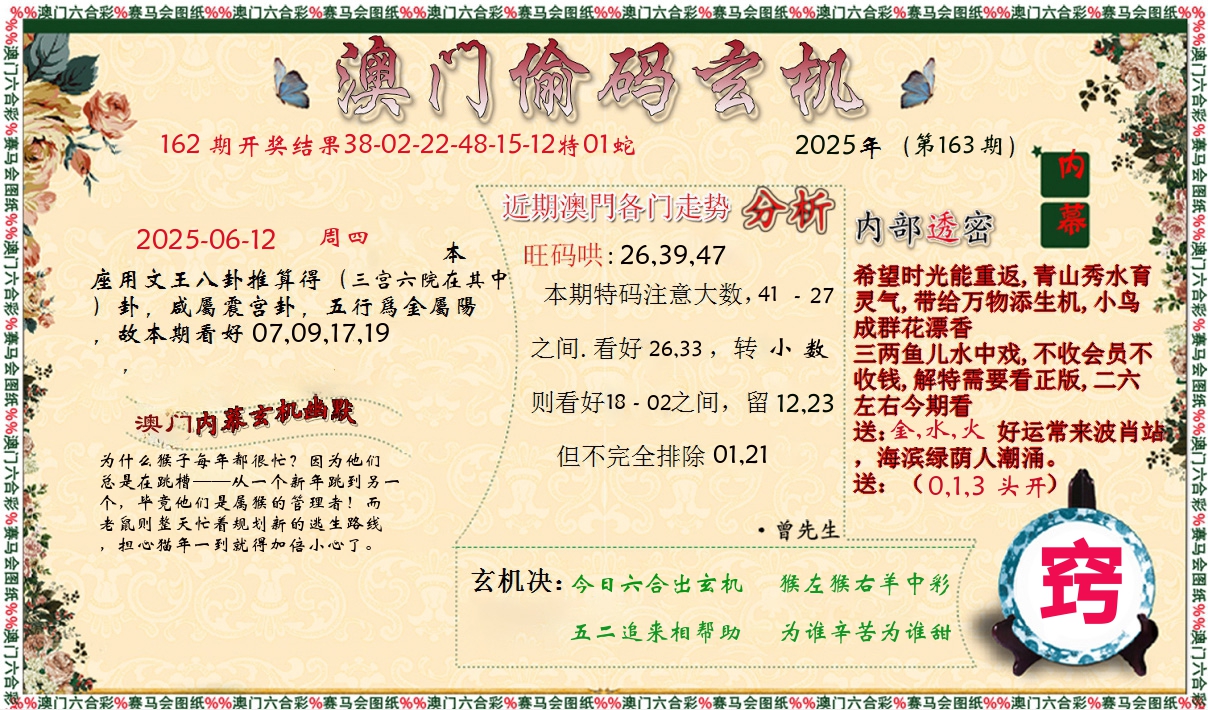 %%澳门六合彩%赛马会图纸%%澳门六合彩%赛马会图纸%%澳门六合彩%赛马会图纸%%澳门六合彩%赛马会图纸%%澳门六合彩%赛马会图纸%%澳门六合彩%赛马会图纸%%
澳门偷码玄机
162 期开奖结果38-02-22-48-15-12特01蛇
2025年（第163期）
内
幕
2025-06-12 周四
本
座用文王八卦推算得（三宫六院在其中
）卦，咸屬震宫卦，五行爲金屬陽
，故本期看好 07,09,17,19
，
澳门内幕玄机幽默
为什么猴子每年都很忙？因为他们
总是在跳槽——从一个新年跳到另一
个，毕竟他们是属猴的管理者！而
老鼠则整天忙着规划新的逃生路线
，担心猫年一到就得加倍小心了。
近期澳門各门走势 分析
旺码哄: 26,39,47
本期特码注意大数, 41 - 27
之间. 看好 26,33 ，转 小 数
则看好18 - 02之间，留 12,23
但不完全排除 01,21
·曾先生
内部透密
希望时光能重返, 青山秀水育
灵气, 带给万物添生机, 小鸟
成群花漂香
三两鱼儿水中戏, 不收会员不
收钱, 解特需要看正版, 二六
左右今期看
送: 金,水,火 好运常来波肖站
，海滨绿荫人潮涌。
送: （0,1,3 头开）
玄机决: 今日六合出玄机 猴左猴右羊中彩
五二追来相帮助 为谁辛苦为谁甜
窍
%%澳门六合彩%赛马会图纸%%澳门六合彩%赛马会图纸%%澳门六合彩%赛马会图纸%%澳门六合彩%赛马会图纸%%澳门六合彩%赛马会图纸%%澳门六合彩%赛马会图纸%%